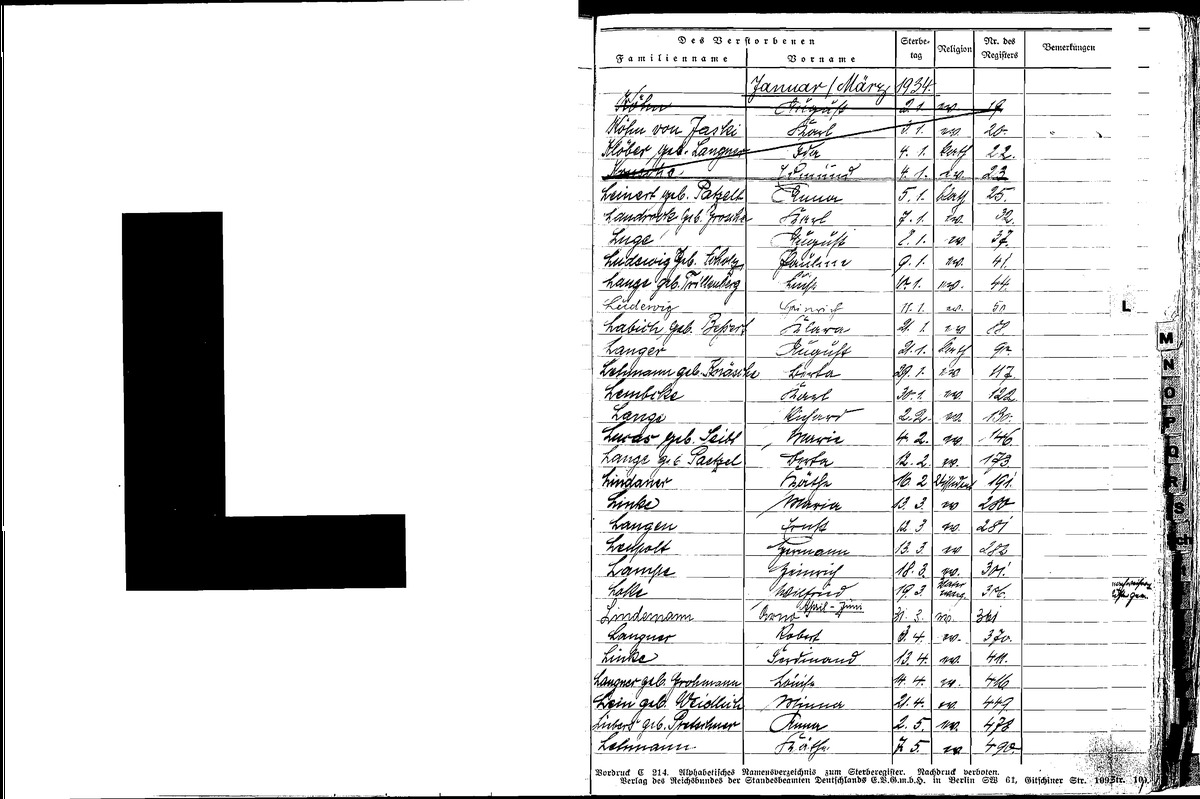 L
Des Verstorbenen
Familienname Vorname Sterbetag Religion Nr. des Registers Bemerkungen
Januar/März 1934.
Köhn August 2.1. ev. 19
Köhn von Jaski Karl 3.1. ev. 20.
Klöber, geb. Langner Ida 4.1. kath 22.
Edmund 4.1. ev. 23
Leinert geb. Patzelt Anna 5.1. kath 25.
Landrock geb. Karl 7.1. ev. 32.
Luge August 8.1. ev. 37.
Ludewig geb. Scholz Pauline 9.1. ev. 41.
Lange geb. Trillenberg Luise 10.1. ev. 44.
Ludewig Heinrich 11.1. ev. 50
Labich geb. Klara 21.1. ev
Langer August 21.1. kath
Lehmann geb. Berta 29.1. ev 117
Lembcke Karl 30.1. ev. 122
Lange Richard 2.2. ev. 130.
Lucas geb. Seibt Marie 4.2. ev. 146.
Lange geb. Paetzel Berta 12.2. ev. 173.
Lindauer Käthe 16.2 Dissident 191.
Linke Maria 13.3. ev 280
Langen Ernst 12.3 ev. 281
Leupolt Hermann 13.3. ev 282
Lampe Heinrich 18.3. ev. 301.
Wilfried 19.3
April - Juni
Lindemann Arno 31.3. ev. 361
Langner Robert 8.4. ev. 370.
Linke Ferdinand 13.4. ev. 411.
Langner geb. Grohmann Luise 14.4. ev. 416
Lein geb. Weidlich Minna 21.4. ev 449
Liebert geb. Pretschner Anna 2.5. ev. 478
Lehmann Käthe 7.5. ev 490.
L
M
N
O
P
R
S
Vordruck C 214. Alphabetisches Namensverzeichnis zum Sterberegister. Nachdruck verboten.
Verlag des Reichsbundes der Standesbeamten Deutschlands E.V.G.m.b.H. in Berlin SW 61, Gitschiner Str. 109